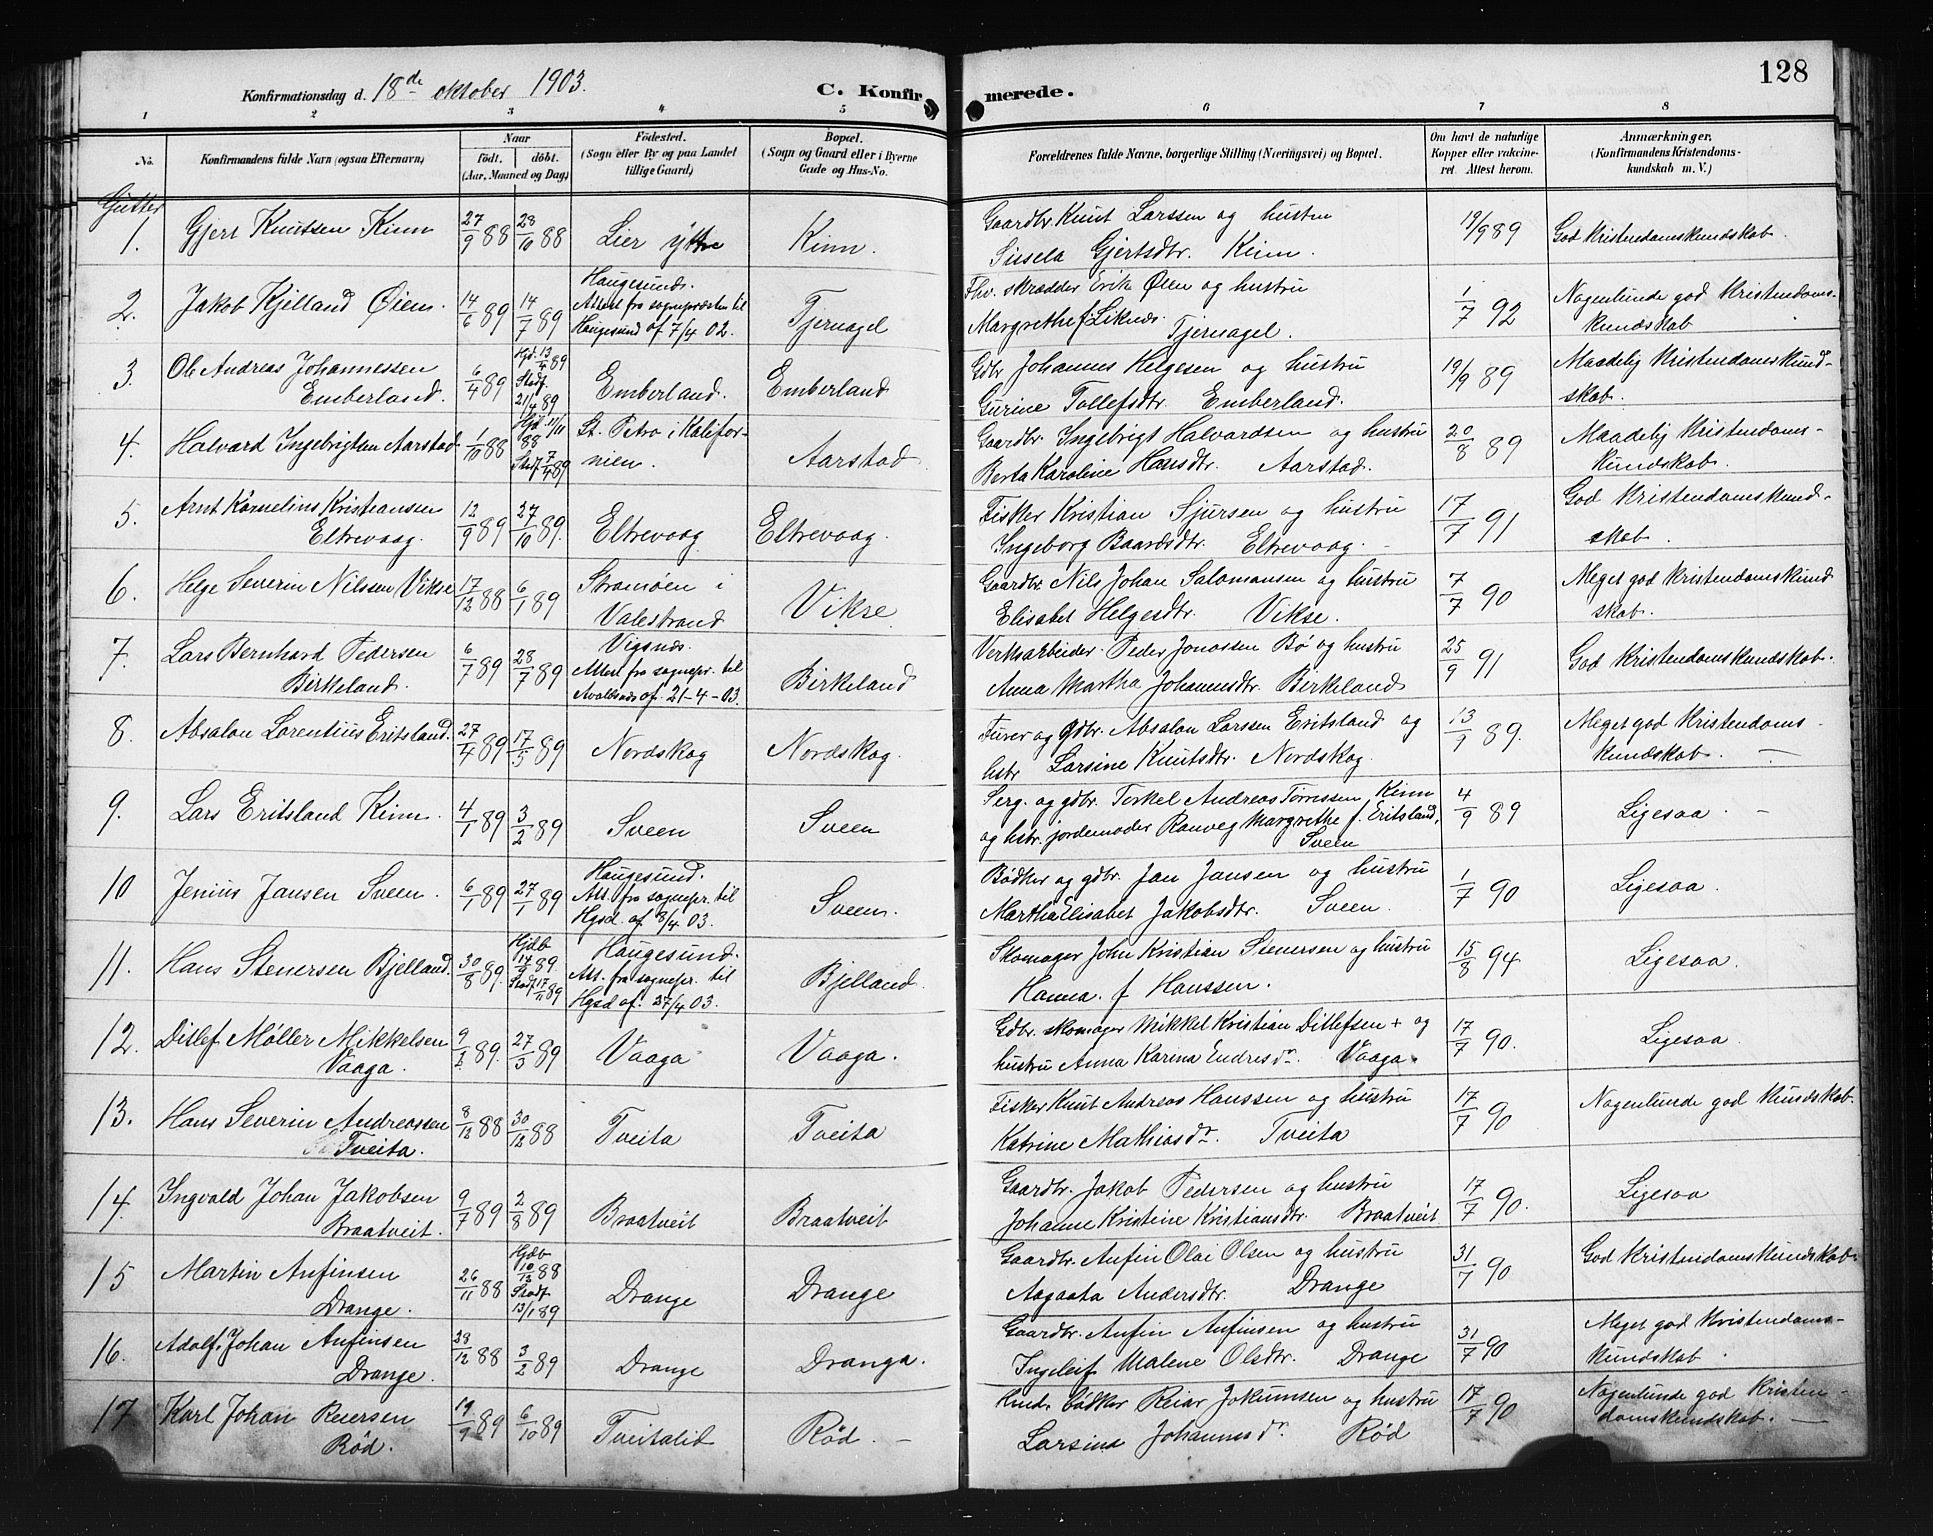 128
Konfirmationsdag d. 18de oktober 1903.
C. Konfirmerede.
1 2 3 4 5 6 7 8
No.
Konfirmandens fulde Navn (ogsaa Efternavn)
Naar
født. døbt.
(Aar, Maaned og Dag)
Fødested.
(Sogn eller By og paa Landet
tillige Gaard)
Bopæl.
(Sogn og Gaard eller i Byerne
Gade og Hus-No.
Forældrenes fulde Navne, borgerlige Stilling (Næringsvei) og Bopæl.
Om havt de naturlige
Kopper eller vakcine-
ret. Attest herom.
Anmærkninger.
(Konfirmandens Kristendoms-
kundskab m. V.)
Gutter
1. Gjert Knutsen Kinn 27/9 88 28/10 88 Lier ytre Kinn. Gaardbr. Knut Larssen og hustru 19/9 89 God Kristendomskundskab.
Sissela Gjertsdtr. Kinn.
2. Jakob Kjelland Øien. 14/6 89 14/7 89 Haugesund. Tjernagel Fhv. skrædder Erik Øien og hustru 1/7 92 Nogenlunde god Kristendoms-
Attest fra sognepræsten til Margrethe f. Liknes. Tjernagel. kundskab
Haugesund af 7/4 02.
3. Ole Andreas Johannessen 6/4 89 Hjd. 13/4 89 Emberland. Emberland Gdbr Johannes Helgesen og hustru 19/9 89 Maadelig Kristendomskund-
Emberland. Stadf. 21/4 89 Gurine Tollefsdtr. Emberland. skab.
4. Halvard Ingebrigtsen Aarstad 1/10 88 Hjd 11/11 88 St. Petro i Kalifor- Aarstad Gaardbr. Ingebrigt Halvardsen og hustru 20/8 89 Maadelig Kristendoms-
Stadf 7/4 89 nien. Berta Karoline Hansdtr. Aarstad. kundskab.
5. Arnt Kornelius Kristiansen 12/9 89 27/10 89. Eltrevaag Eltrevaag. Fisker Kristian Sjursen og hustru 17/7 91 God Kristendomskund-
Eltrevaag. Ingeborg Baardsdtr. Eltrevaag. skab.
6. Helge Severin Nilssen Vikse 17/12 88 6/1 89 Strømøen i Vikse Gaardbr. Nils Johan Salomonsen og hustru 7/7 90 Meget god Kristendomskund
Valestrand Elisabet Helgesdtr. Vikse. skab.
7. Lars Bernhard Pedersen 6/7 89 28/7 89 Vigsnæs. Birkeland Verksarbeider. Peder Jonassen Bø og hustru 25/9 91 God Kristendomskundskab.
Birkeland. Attest fra sognepr. til Anna Martha Johannesdtr. Birkeland
Avaldsnæs af. 21-4-03.
8. Absalon Lorentius Eritsland. 27/4 89 17/5 89 Nordskog Nordskog. Furer og gdbr. Absalon Larssen Eritsland og 13/9 89. Meget god Kristendoms-
hstr Larsine Knutsdtr. Nordskog. kundskab.
9. Lars Eritsland Kinn. 4/1 89 3/2 89 Sveen Sveen Serg. og gdbr. Torkel Andreas Torressen Kinn 4/9 89 Ligesaa
og hstr. jordemoder Ranveg Margrethe f. Eritsland,
Sveen
10 Jenius Jansen Sveen. 6/1 89 27/1 89 Haugesund. Sveen. Bødker og gdbr. Jan Jansen og hustru 1/7 90 Ligesaa.
Att. fra sognepr. til Martha Elisabet Jakobsdtr. Sveen.
Hgsd af 8/4 03.
11. Hans Stenersen Bjelland. 30/8 89. Hjdb 14/9 89. Haugesund. Bjelland. Skomager John Kristian Stenersen og hustru 15/8 94 Ligesaa.
Stadf 17/11 89 Att. fra sognepr. til Hanna. f Hanssen.
Hgsd af. 27/4 03.
12. Ditlef Møller Mikkelsen 9/2 89. 27/3 89 Vaaga Vaaga. Gdbr. skomager Mikkel Kristian Ditlefsen + og 17/7 90. Ligesaa.
Vaaga. hustru Anna Karina Endresdr. Vaaga.
13. Hans Severin Andreassen 8/12 88 30/12 88 Tveita Tveita Fisker Knut Andreas Hanssen og hustru 17/7 90 Nogenlunde god Kundskab.
Tveita. Katrine Mathiasdr. Tveita
14. Ingvald Johan Jakobsen 9/7 89 2/8 89 Braatveit Braatveit Gaardbr. Jakob Pedersen og hustru 17/7 90. Ligesaa
Braatveit. Johanne Kristine Kristiansdtr. Braatveit
15 Martin Anfinsen 26/11 88 Hjdb 10/12 88 Drange Drange Gaardbr. Anfin Olai Olsen og hustru 31/7 90 God Kristendomskundskab.
Drange. Stadf 13/1 89 Aagaata Andersdtr. Drange
16. Adolf Johan Anfinsen 28/12 88 3/2 89 Drange Dranga. Gaardbr. Anfin Anfinsen og hustru 31/7 90 Meget god Kristendoms-
Drange. Ingeleif Malene Olsdtr. Drange kundskab.
17 Karl Johan Reiersen 19/9 89 6/10 89 Tveitalid Rød. Hmd. bødker Reiar Jokumsen og hustru 17/7 90 Nogenlunde god Kristen-
Rød. Larsina Johannesdr. Rød domskundskab.